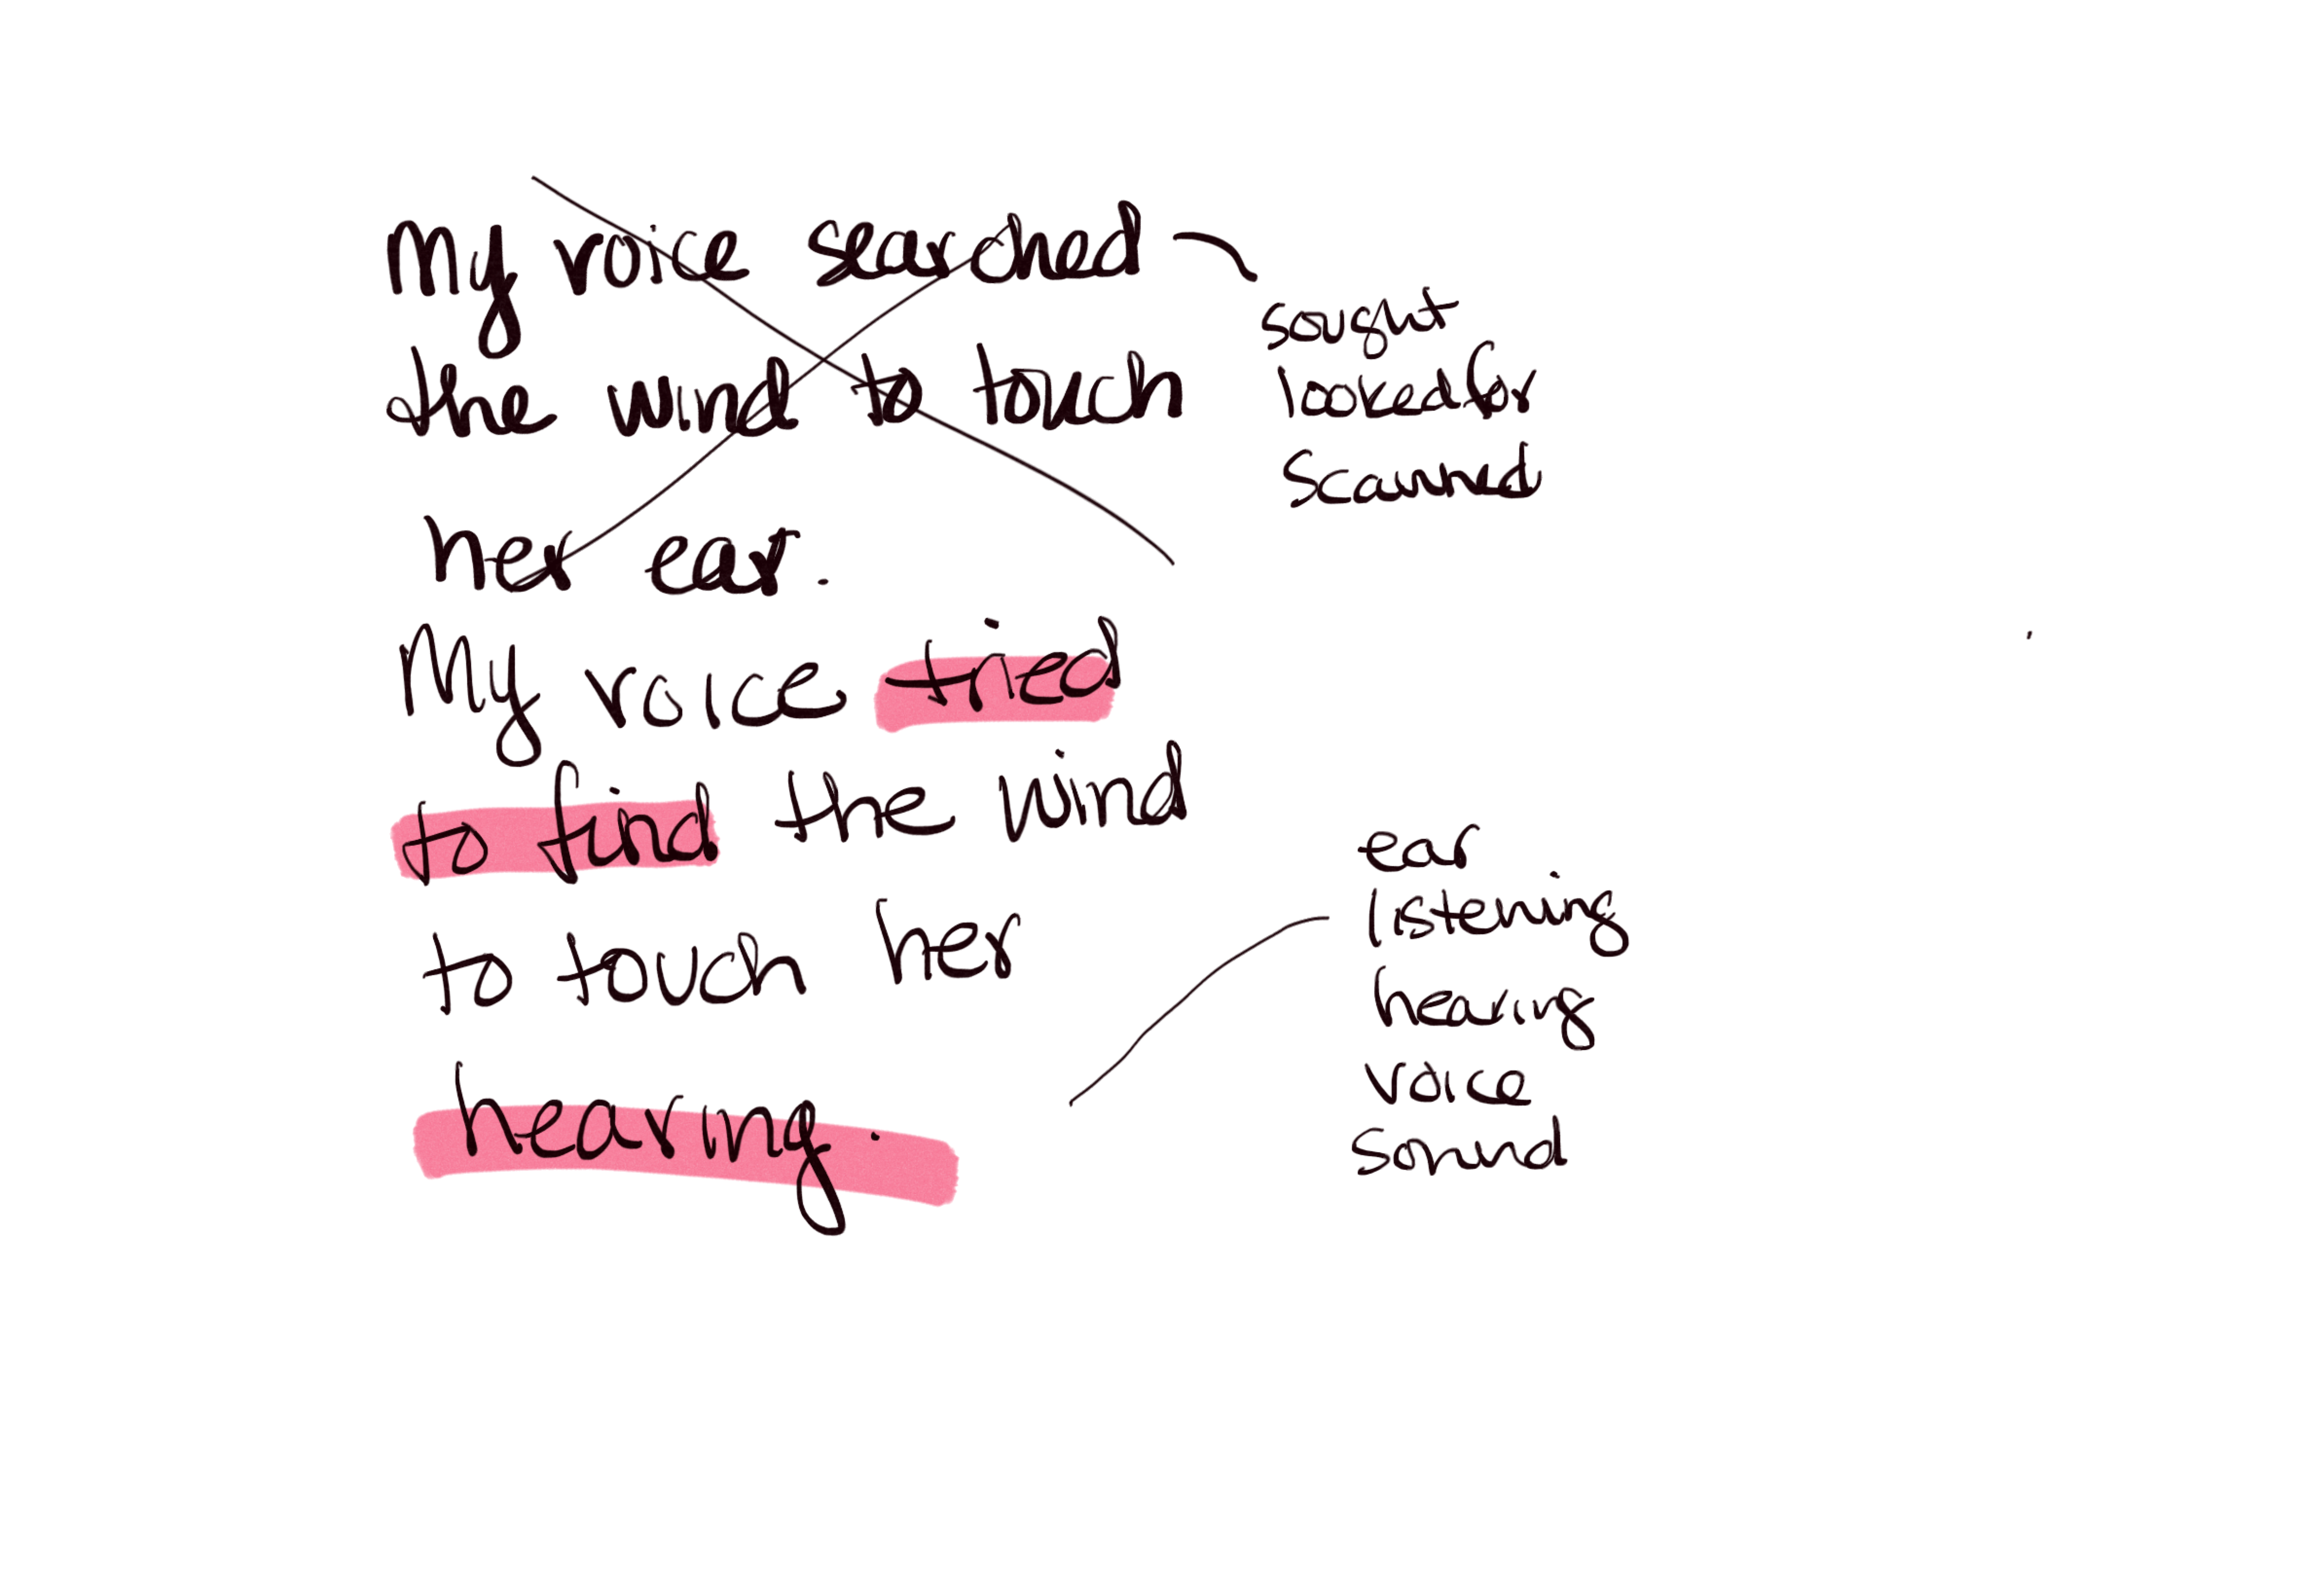 My voice searched
the wind to touch
her ear.
sought
looked for
scanned
My voice tried
to find the wind
to touch her
hearing.
ear
listening
hearing
voice
sound